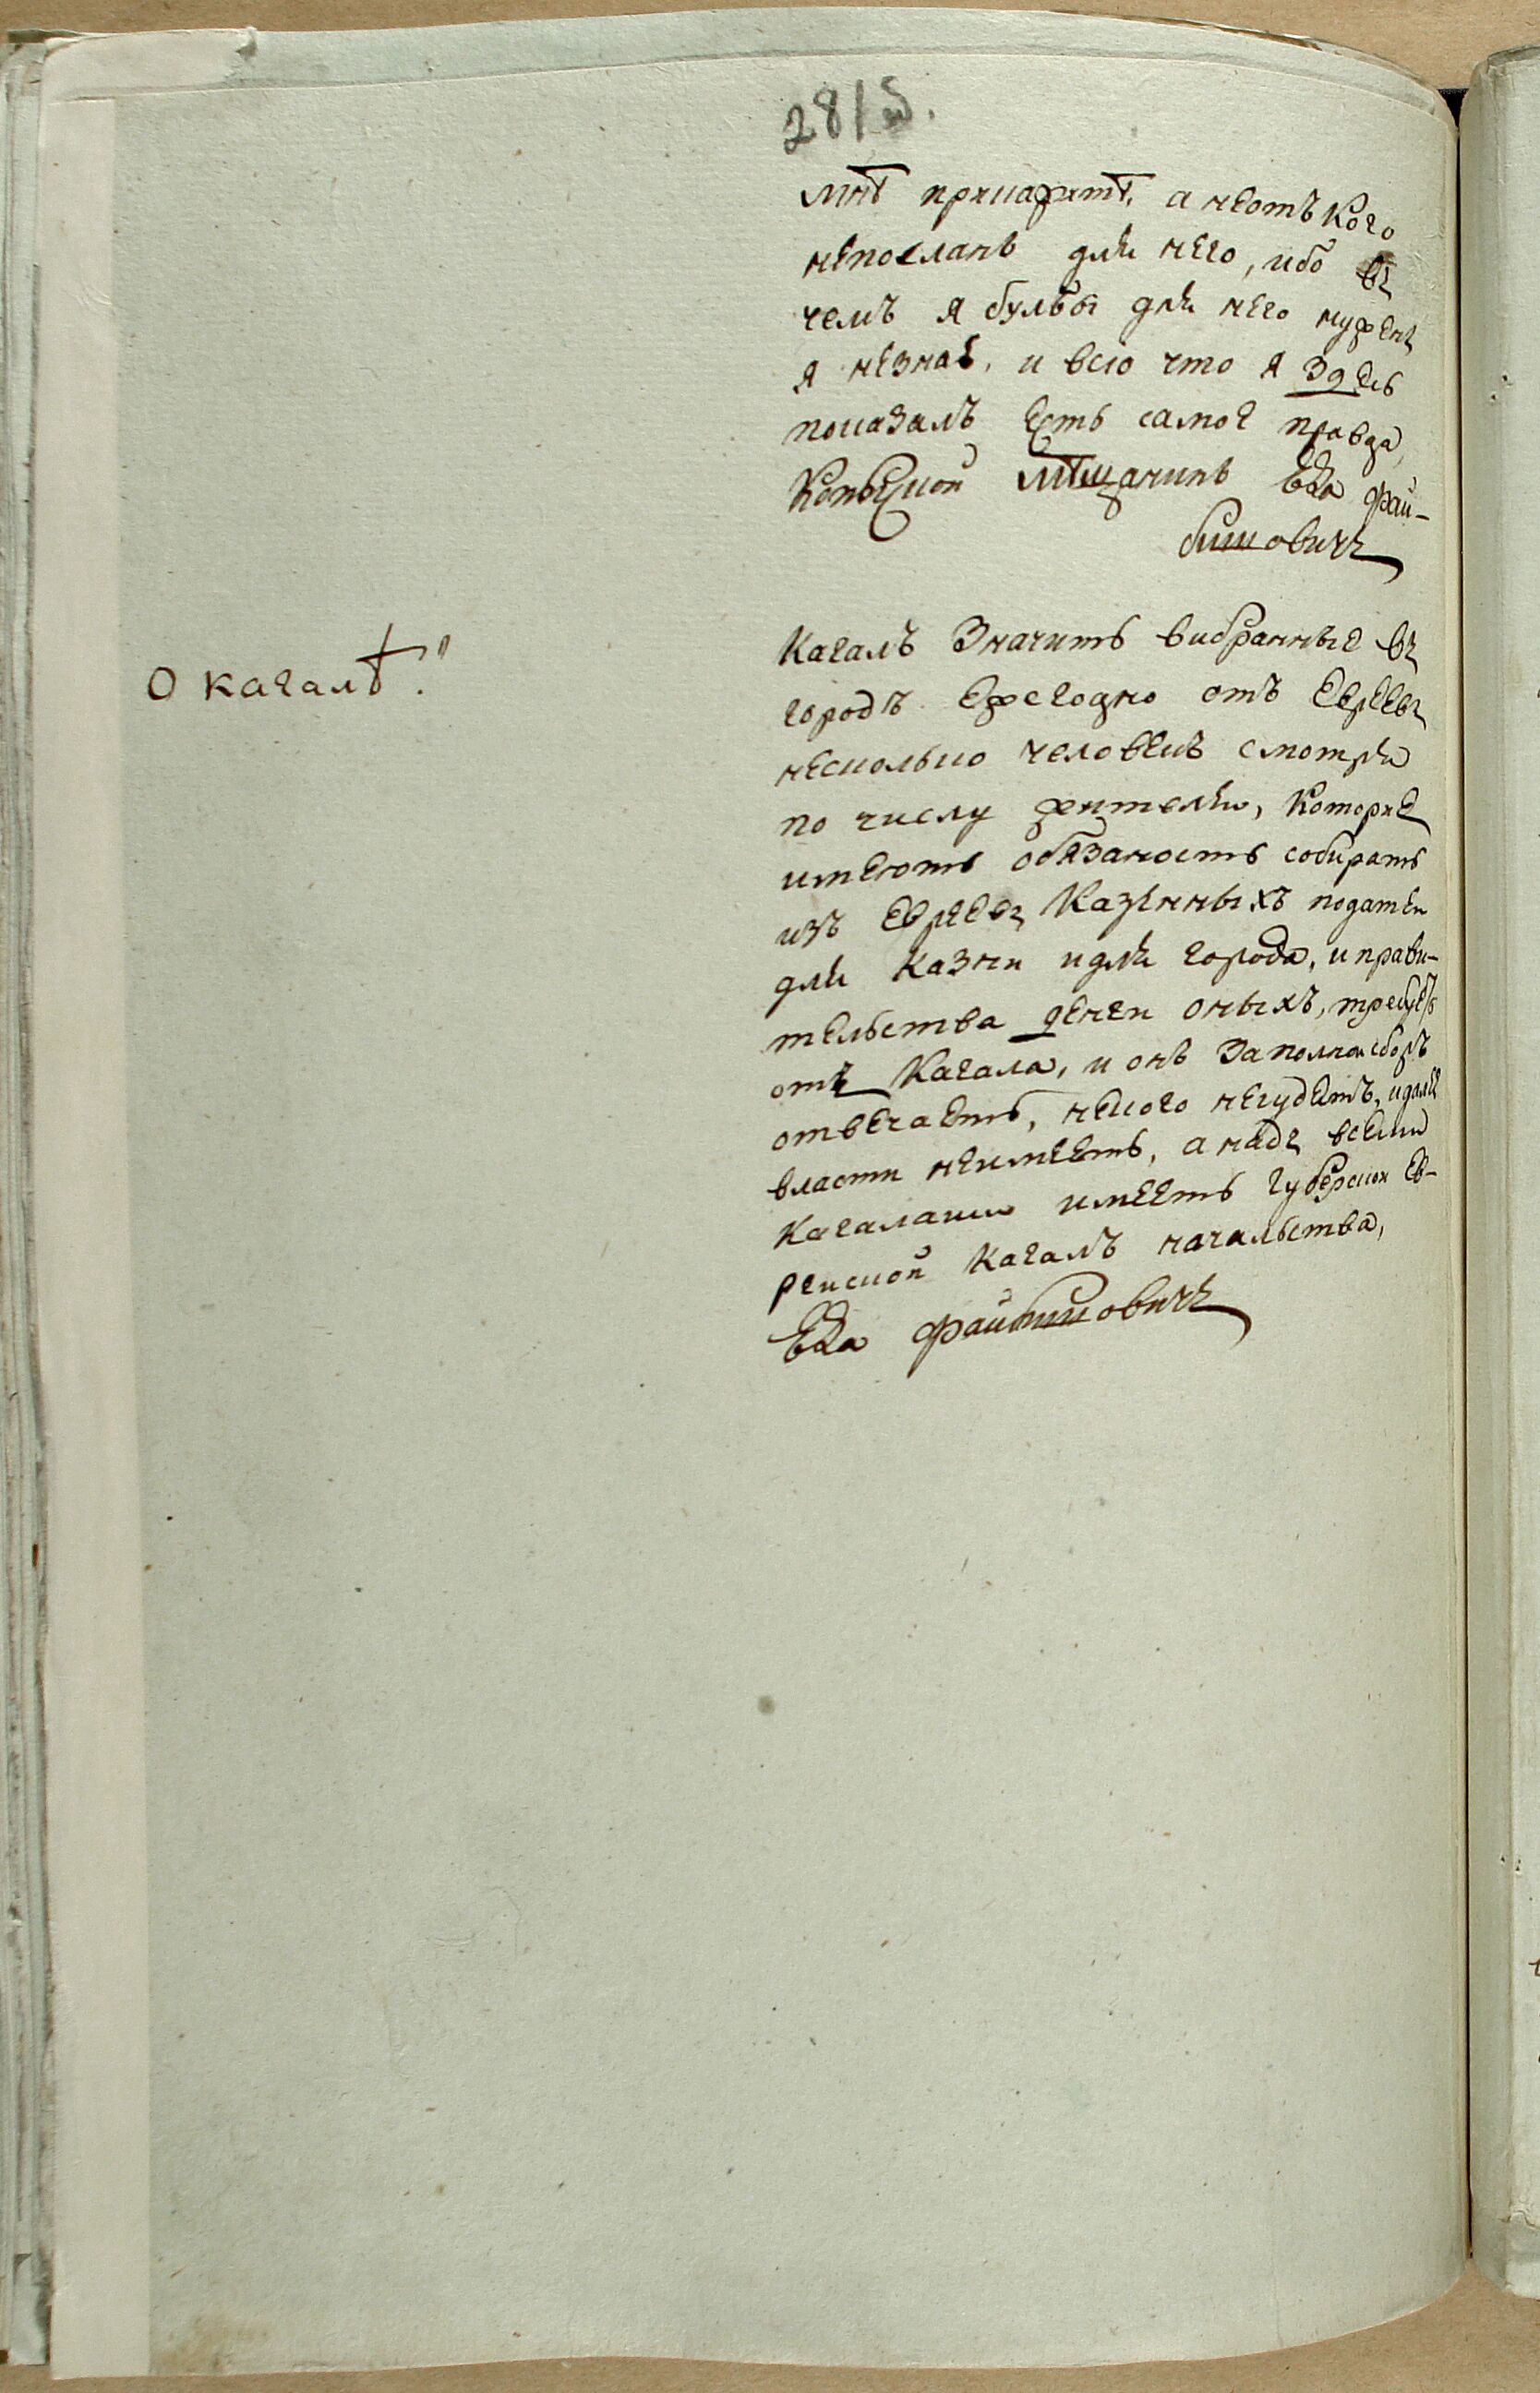 281 б.
мнѣ прикажитѣ, а неотъ кого
непосланъ для него, ибо въ
чемъ я булъбы для него нуженъ
я незнаё, и всіо что я здесь
показалъ есть самое правда,
Копыской мѣщанинъ Ека Фай-
бишовичъ
О кагалѣ."
Кагалъ Значитъ вибранные въ
городъ ежегодно отъ Евреевъ
несколько человекъ смотря
по числу жителяи, Которие
имеютъ обязаность собирать
изъ Евреевъ Казенныхъ податеи
для Казни идля города, и прави-
тельства денеи оныхъ, требуетъ
отъ Кагала, и онъ Заполнои сборъ
отвечаетъ, некого несудетъ, идалее
власти неимеетъ, а надъ всеми
Кагалами имеетъ Губернски Ев-
реиской Кагалъ начальства,
Ека Файбишовичъ